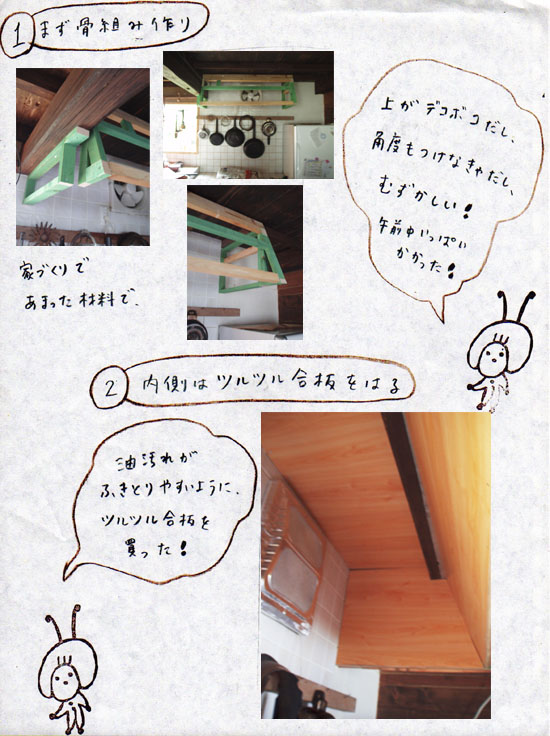 1 まず骨組み作り
上がデコボコだし、
角度もつけなきゃだし、
むずかしい!
午前中いっぱい
かかった!
家づくりで
あまった材料で、
2 内側はツルツル合板をはる
油汚れが
ふきとりやすいように、
ツルツル合板を
買った!